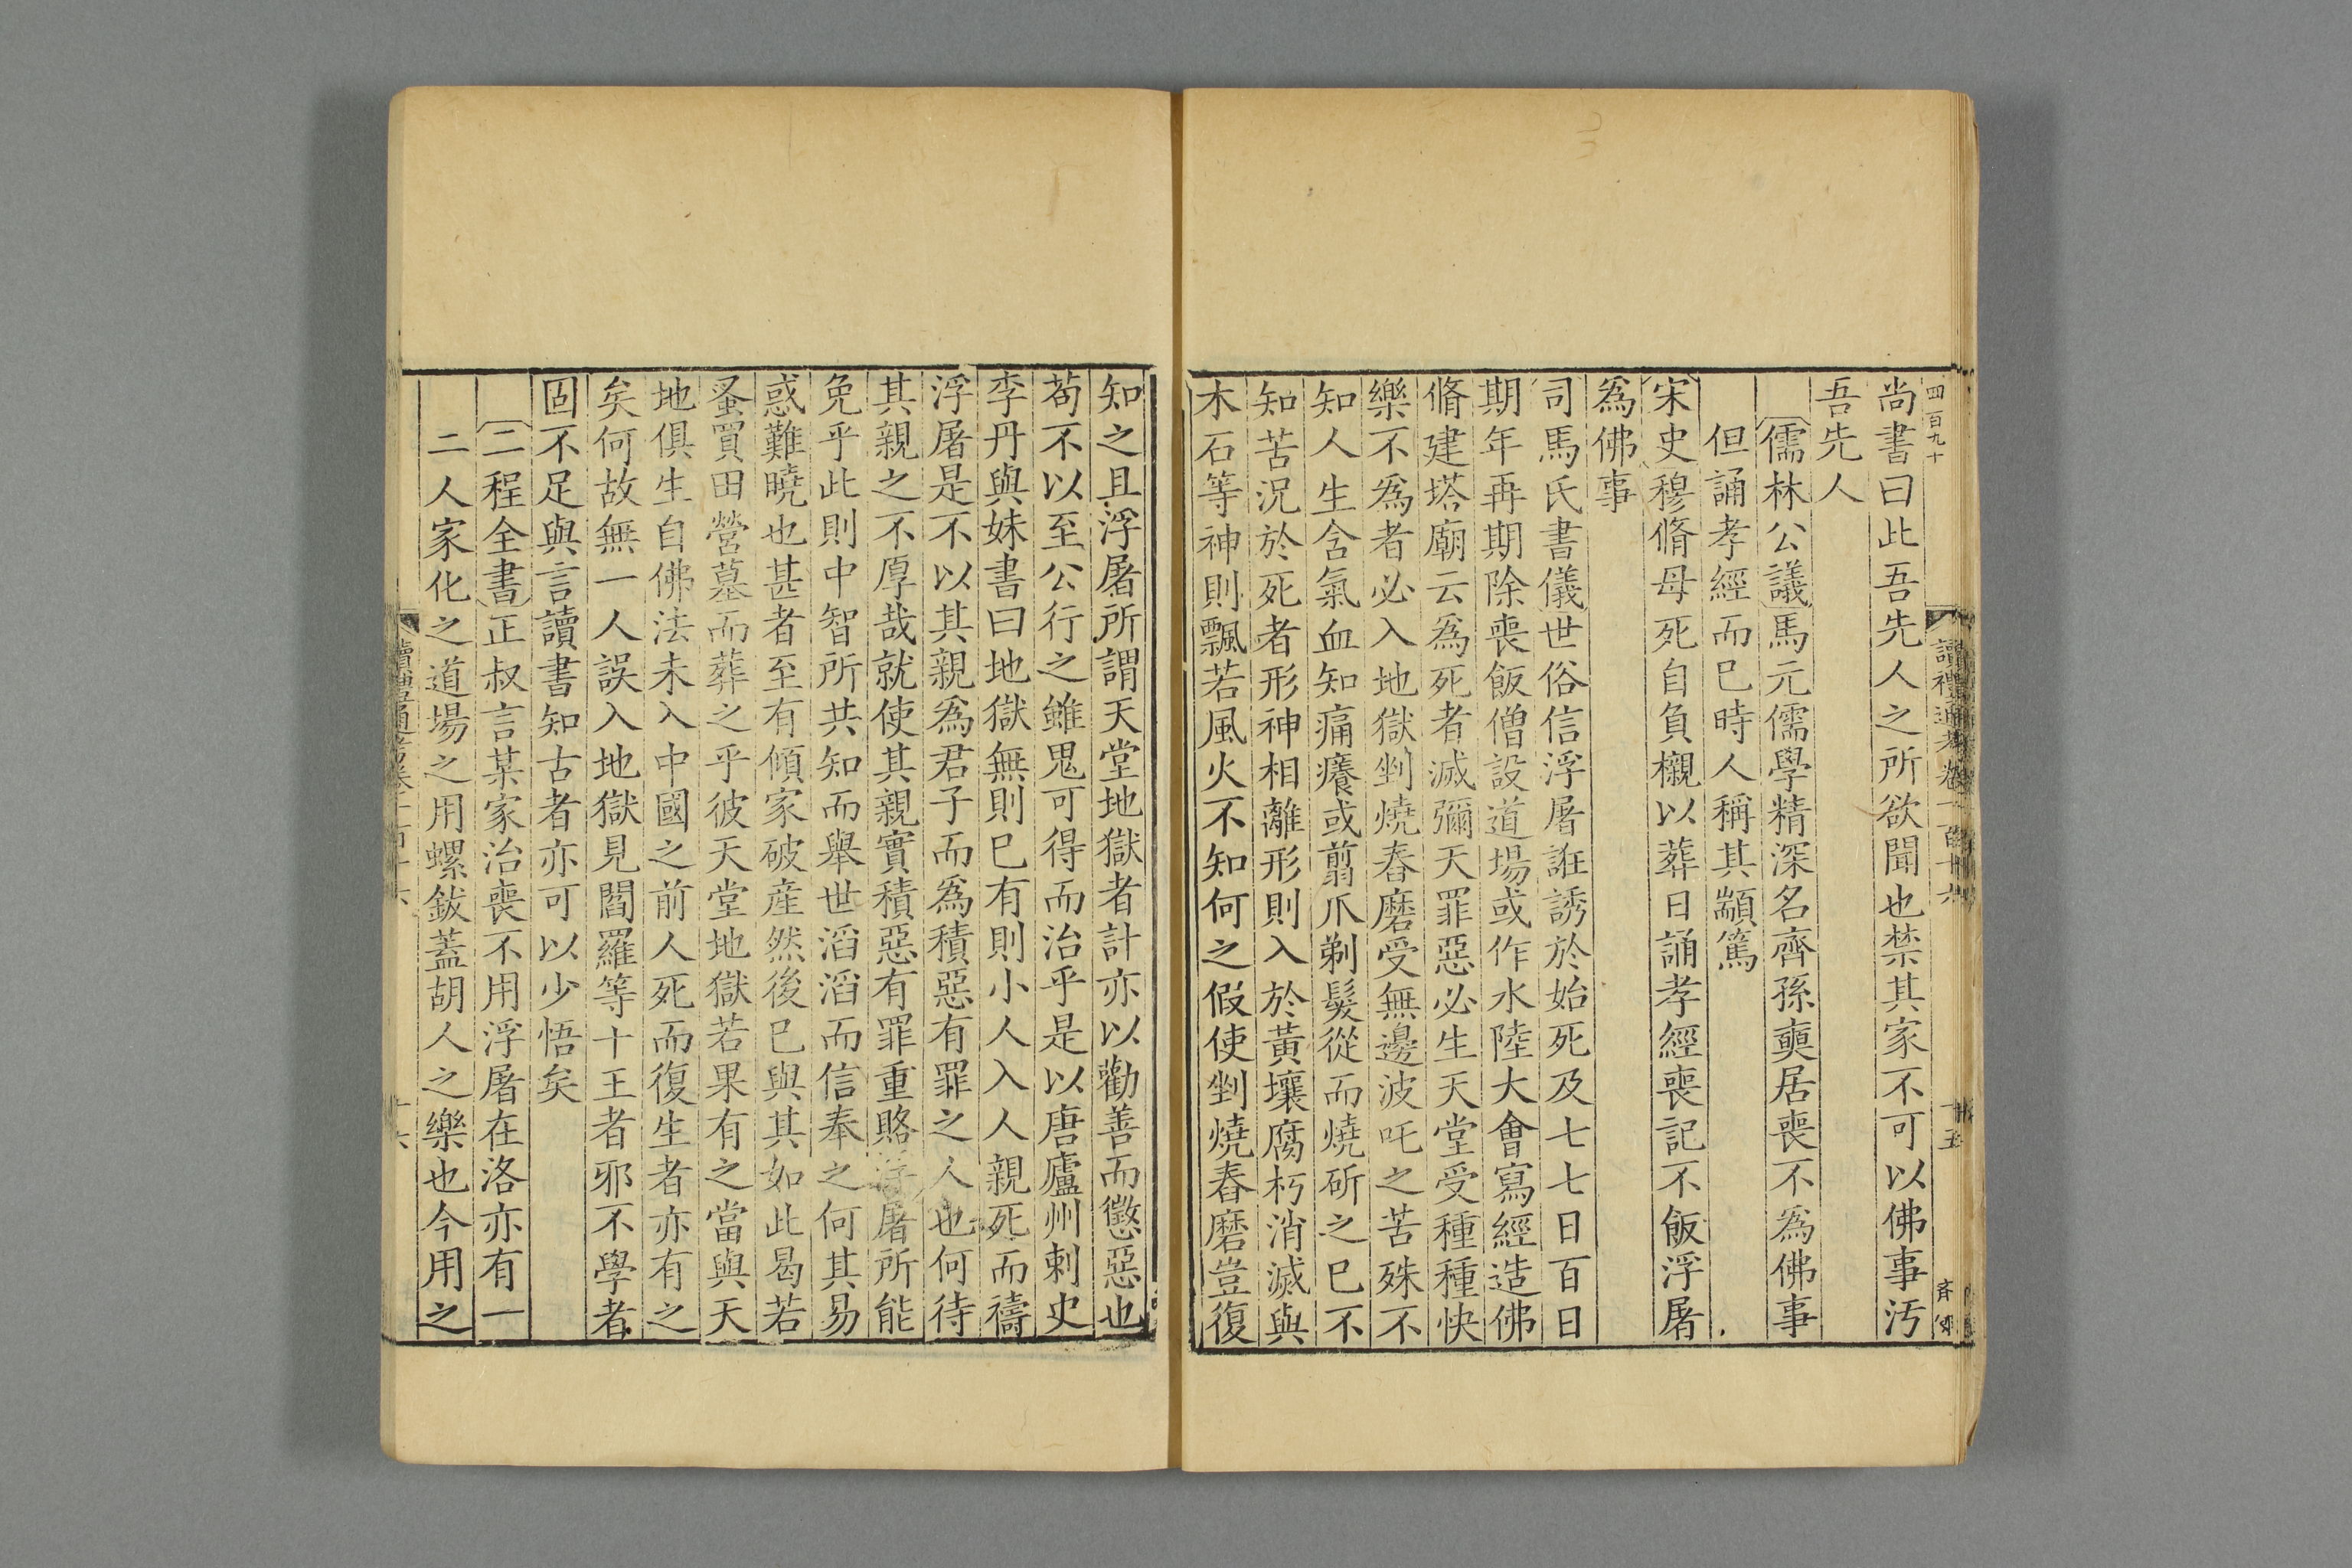 四百九十
讀禮通考卷一百十六
十五
尚書曰此吾先人之所欲聞也禁其家不可以佛事汚
吾先人
儒林公議馬元儒學精深名齊孫奭居喪不爲佛事
但誦孝經而已時人稱其顓篤
宋史穆脩母死自負櫬以葬日誦孝經喪記不飯浮屠
爲佛事
司馬氏書儀世俗信浮屠誑誘於始死及七七日百日
期年再期除喪飯僧設道場或作水陸大會寫經造佛
脩建塔廟云爲死者滅彌天罪惡必生天堂受種種快
樂不爲者必入地獄剉燒舂磨受無邊波吒之苦殊不
知人生含氣血知痛癢或翦爪剃髮從而燒斫之已不
知苦況於死者形神相離形則入於黃壤腐朽消滅與
木石等神則飄若風火不知何之假使剉燒舂磨豈復
知之且浮屠所謂天堂地獄者計亦以勸善而懲惡也
苟不以至公行之雖鬼可得而治乎是以唐廬州刺史
李丹與妹書曰地獄無則已有則小人入人親死而禱
浮屠是不以其親爲君子而爲積惡有罪之人也何待
其親之不厚哉就使其親實積惡有罪重賂浮屠所能
免乎此則中智所共知而舉世滔滔而信奉之何其易
惑難曉也甚者至有傾家破産然後已與其如此曷若
蚤買田營墓而葬之乎彼天堂地獄若果有之當與天
地俱生自佛法未入中國之前人死而復生者亦有之
矣何故無一人誤入地獄見閻羅等十王者邪不學者
固不足與言讀書知古者亦可以少悟矣
二程全書正叔言某家治喪不用浮屠在洛亦有一
二人家化之道場之用螺鈸蓋胡人之樂也今用之
讀禮通考卷一百十六
十六